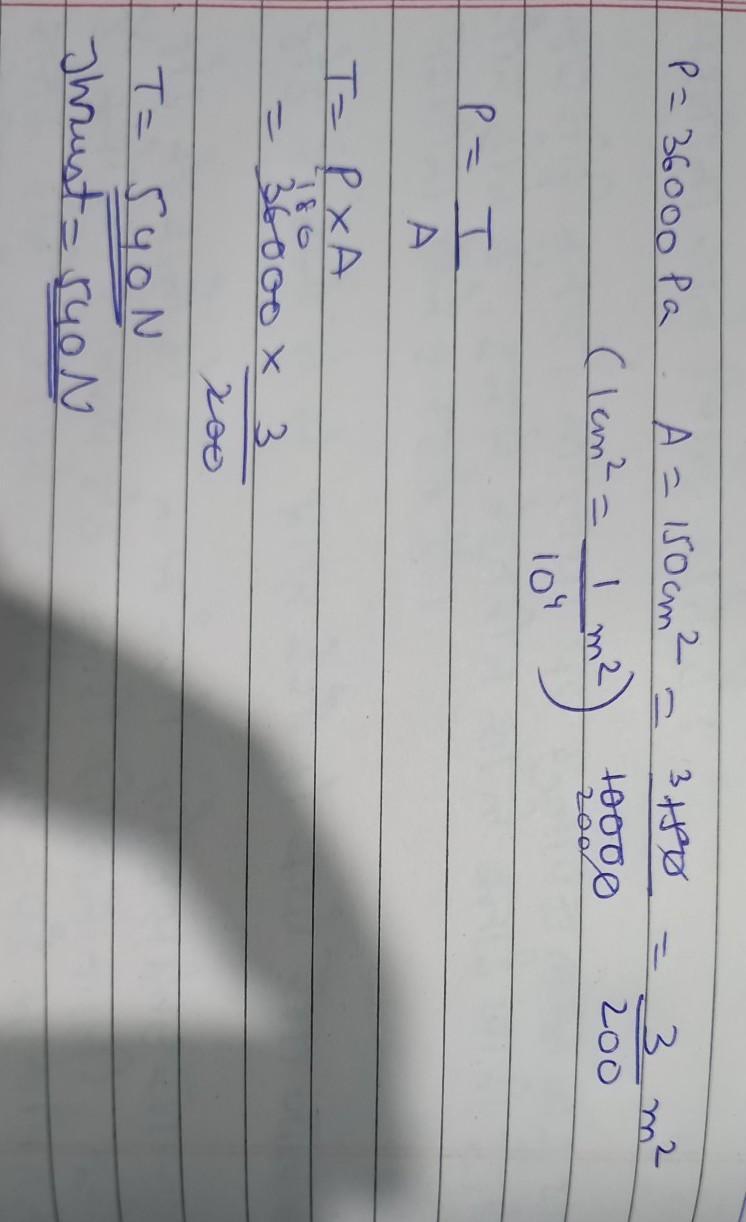 P = 36000 Pa . A = 150cm² = 3 150/10000 200 = 3/200 m²
(1cm² = 1/10⁴ m²)
P = T/A
T = P × A
= 180 36000 × 3/200
T = 540 N
Thrust = 540 N